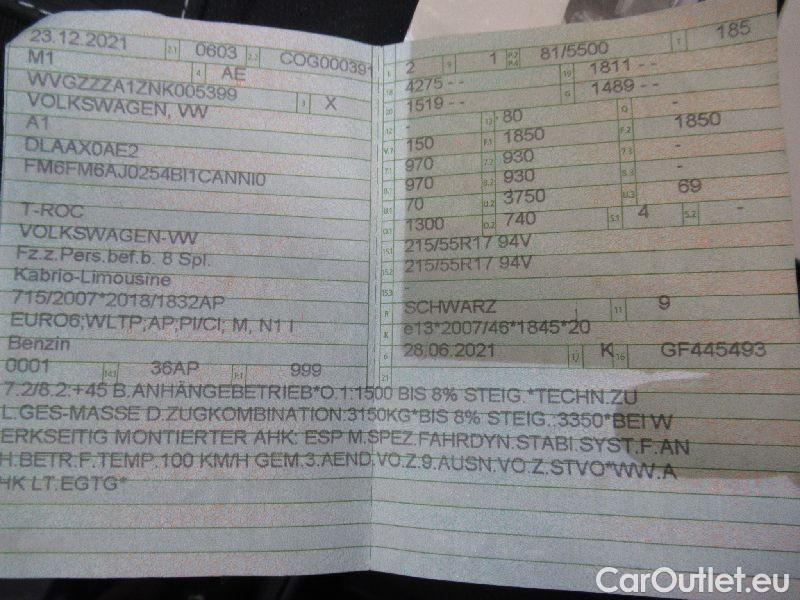 23.12.2021 2.1 0603 2.2 COG000391
M1 4 AE
WVGZZZA1ZNK005399 3 X
VOLKSWAGEN, VW
A1
DLAAX0AE2
FM6FM6AJ0254BI1CANNI0
T-ROC
VOLKSWAGEN-VW
Fz.z.Pers.bef.b. 8 Spl.
Kabrio-Limousine
715/2007*2018/1832AP
EURO6;WLTP;AP;PI/CI; M, N1 I
Benzin
0001 14.1 36AP P.1 999
L 2 9 1 P.2 P.4 81/5500 T 185
18 4275 - - 19 1811 - -
20 1519 - - G 1489 - -
12 - 13 80 Q -
V.7 150 F.1 1850 F.2 1850
7.1 970 7.2 930 7.3 -
8.1 970 8.2 930 8.3 -
U.1 70 U.2 3750 U.3 69
O.1 1300 O.2 740 S.1 4 S.2 -
15.1 215/55R17 94V
15.2 215/55R17 94V
15.3 -
R SCHWARZ 11 9
K e13*2007/46*1845*20
6 28.06.2021 17 K 16 GF445493
21
7.2/8.2:+45 B.ANHÄNGEBETRIEB*O.1:1500 BIS 8% STEIG.*TECHN.ZU
L.GES-MASSE D.ZUGKOMBINATION:3150KG*BIS 8% STEIG.:3350*BEI W
ERKSEITIG MONTIERTER AHK: ESP M.SPEZ.FAHRDYN.STABI.SYST.F.AN
H.BETR.F.TEMP.100 KM/H GEM.3.AEND.VO.Z.9.AUSN.VO.Z.STVO*WW.A
HK LT.EGTG*
CarOutlet.eu